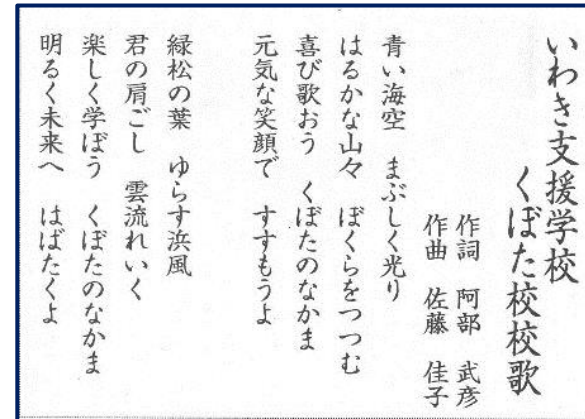 いわき支援学校
くぼた校校歌
作詞　阿部　武彦
作曲　佐藤　佳子
青い海空　まぶしく光り
はるかな山々　ぼくらをつつむ
喜び歌おう　くぼたのなかま
元気な笑顔で　すすもうよ
緑松の葉　ゆらす浜風
君の肩ごし　雲流れいく
楽しく学ぼう　くぼたのなかま
明るく未来へ　はばたくよ